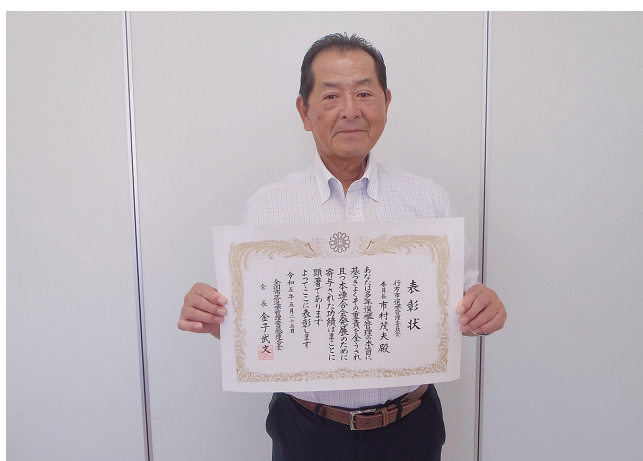 表彰状
行方市選挙管理委員会
委員長 市村茂夫殿
あなたは多年選挙管理の本旨に
基づきよくその重責を全うされ
且つ本連合会発展のために
寄与された功績はまことに
顕著であります
よってここに表彰します
令和五年五月二十五日
全国市区選挙管理委員会連合会
会長 金子武文